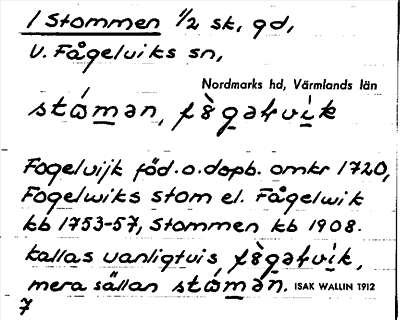 / Stommen 1/2 sk, gd,
V. Fågelviks sn,
Nordmarks hd, Värmlands län
Fogelvijk föd.o.dopb. omkr 1720,
Fogelwiks stom el. Fågelwik
kb 1753-57, Stommen kb 1908.
Kallas vanligtvis
mera sällan
ISAK WALLIN 1912
7